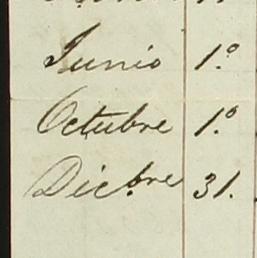 Junio 1.º
Octubre 1.º
Dic.bre 31.